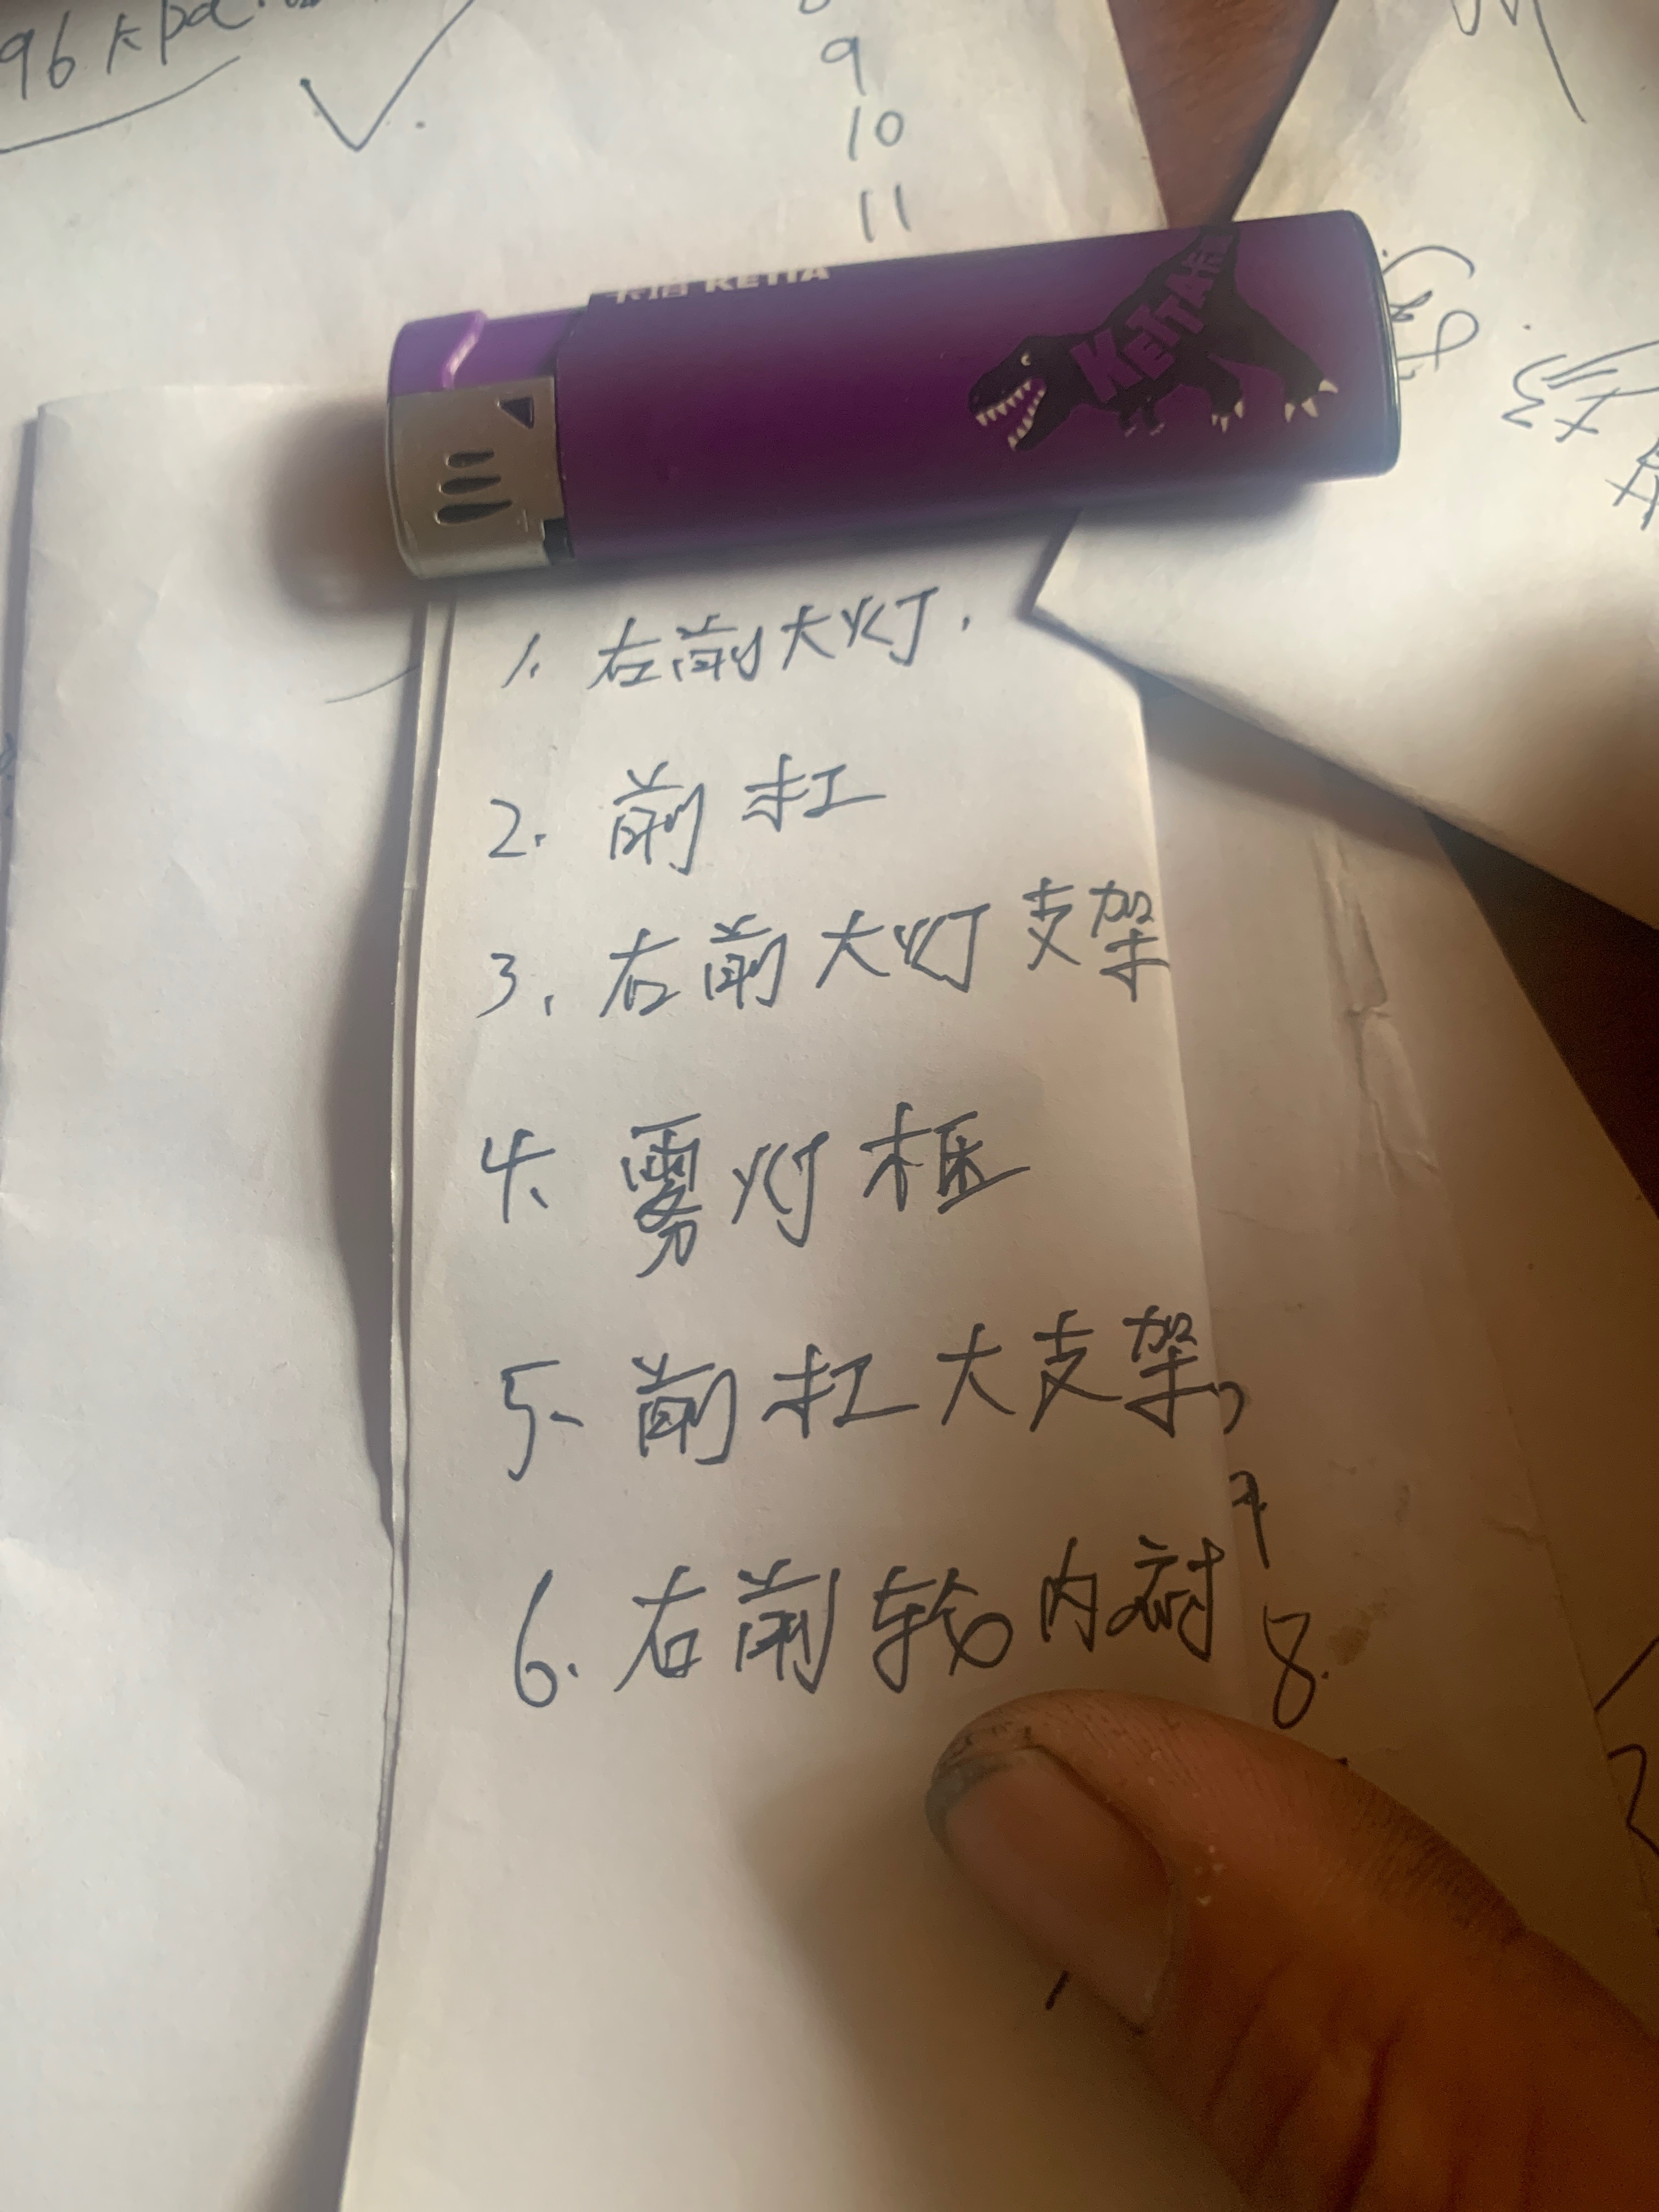 96
9
10
11
KEITA
KEITA卡
1. 右前大灯.
2. 前杠
3. 右前大灯支架
4. 雾灯框
5. 前杠大支架
7
6. 右前轮内衬
8.